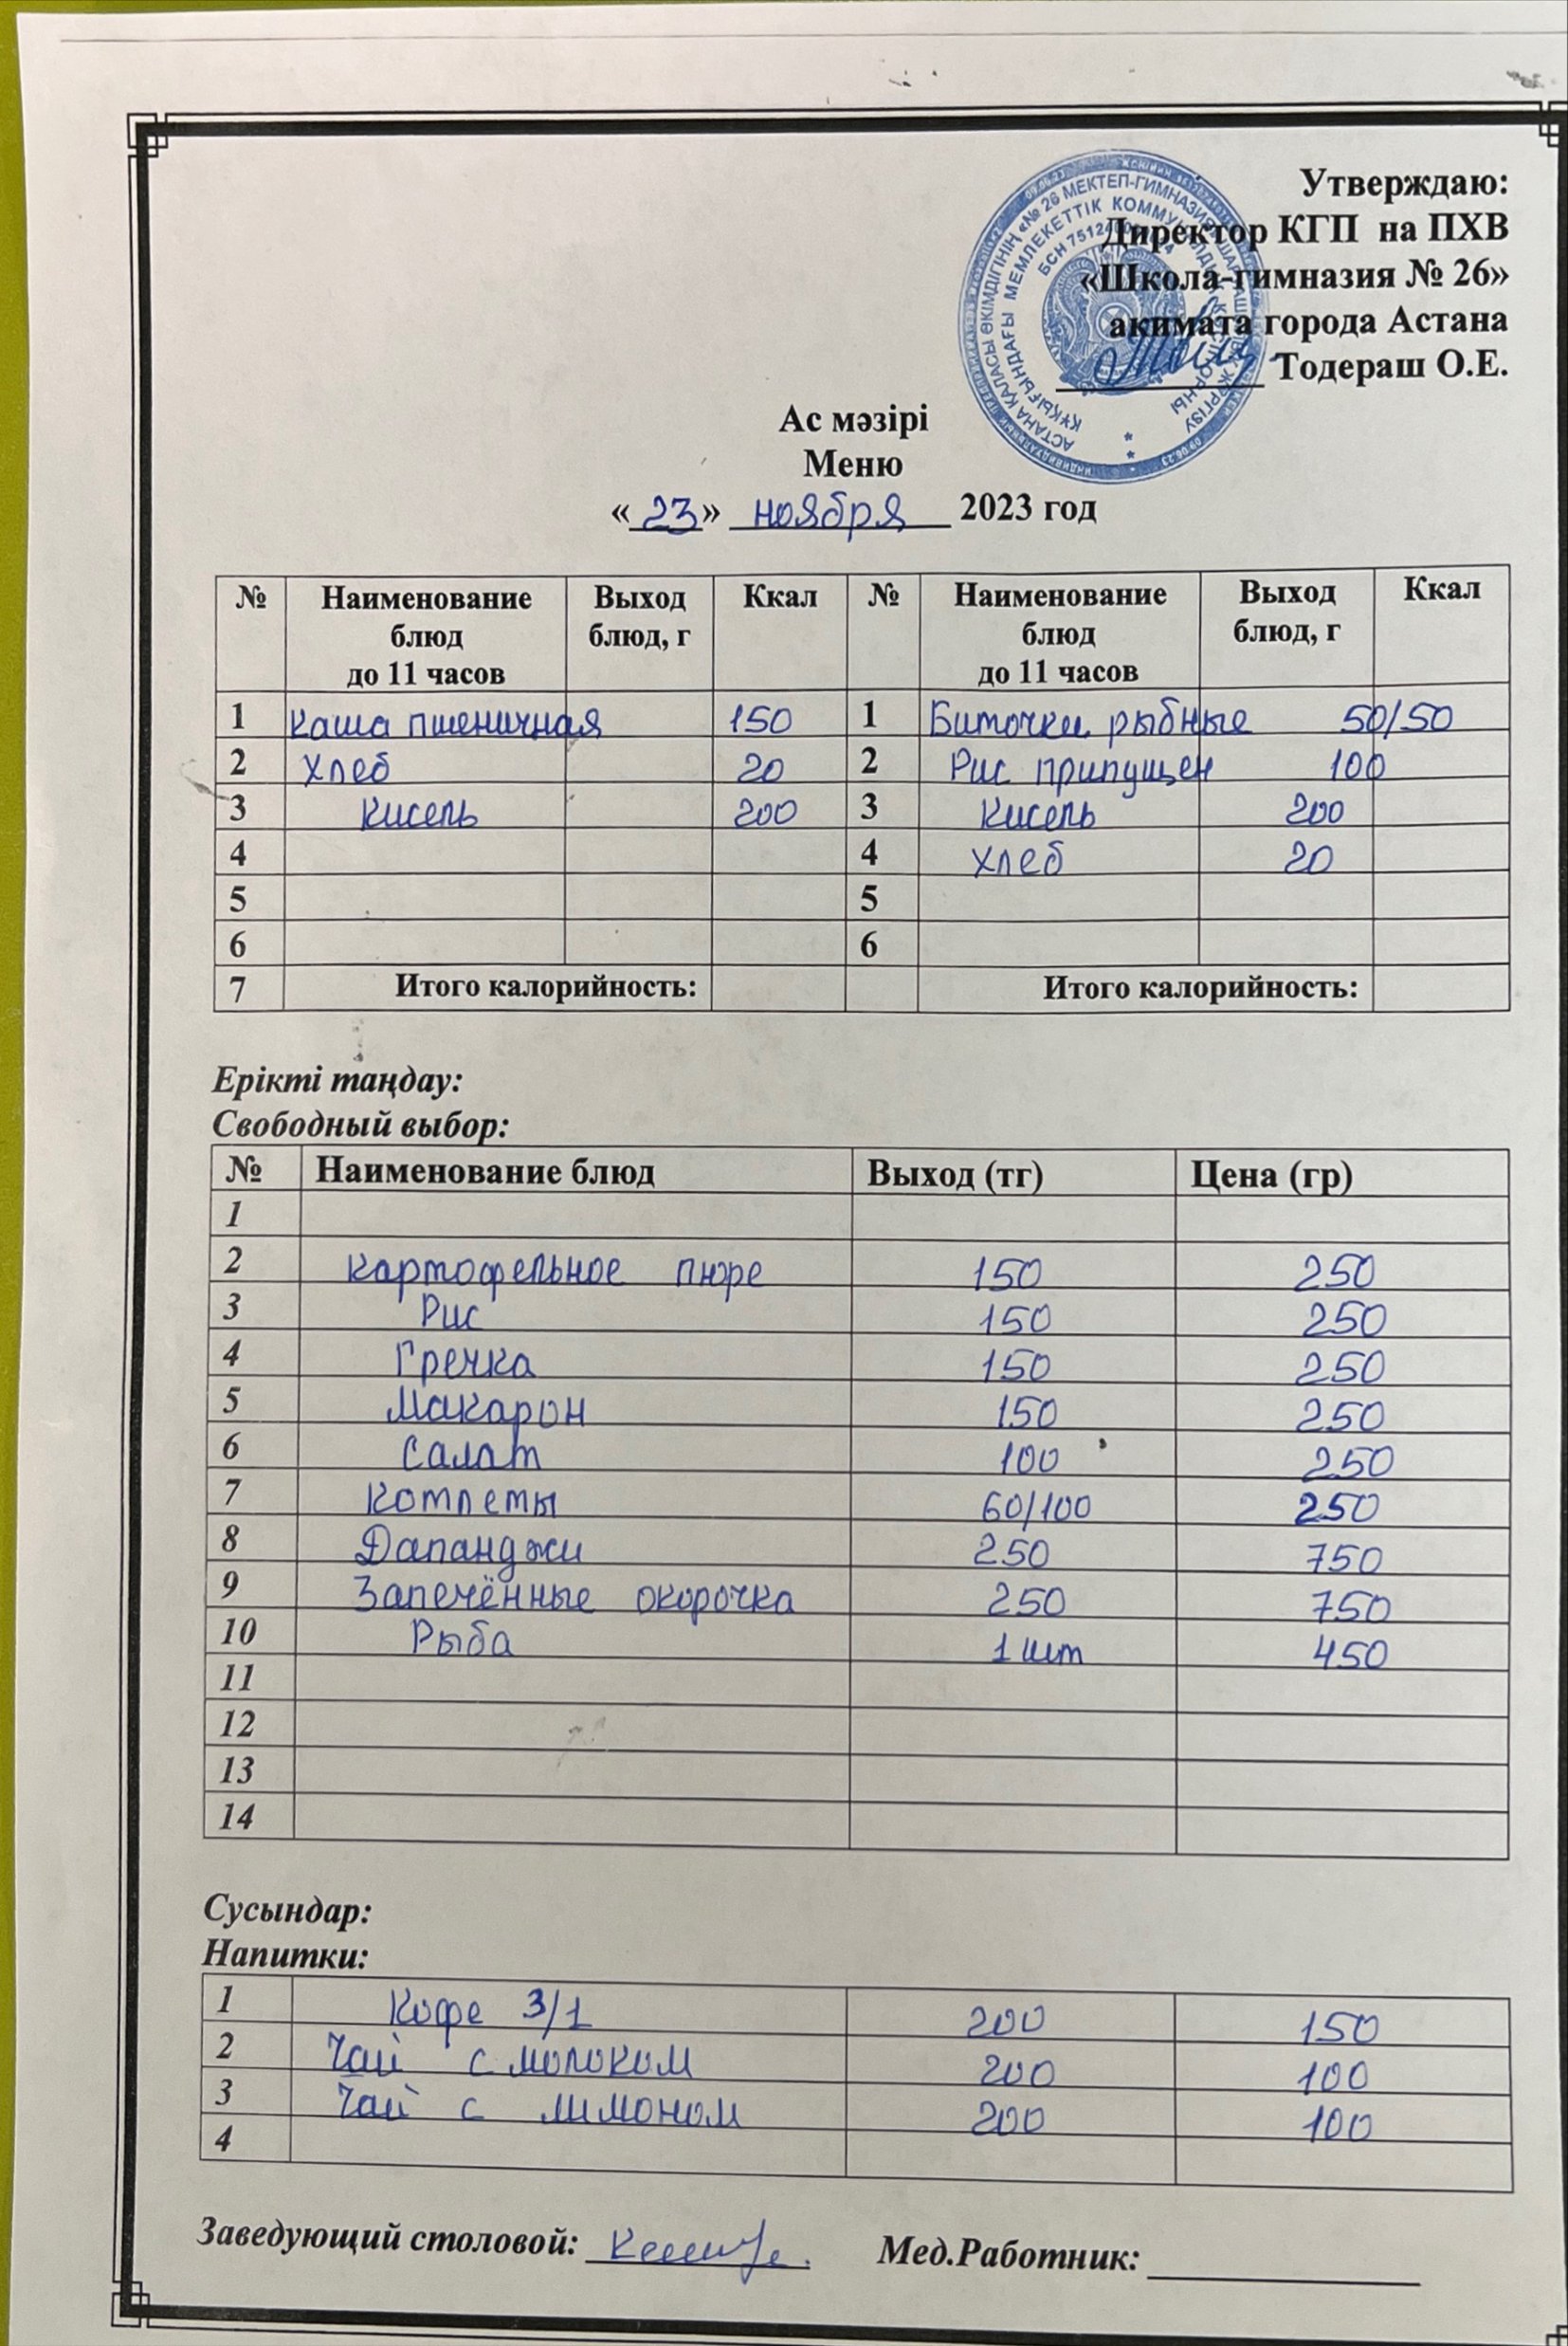 Утверждаю:
Директор КГП на ПХВ
«Школа-гимназия № 26»
акимата города Астана
Тодераш О.Е.
Ас мәзірі
Меню
«23» ноября 2023 год
№ Наименование блюд до 11 часов Выход блюд, г Ккал № Наименование блюд до 11 часов Выход блюд, г Ккал
1 Каша пшеничная 150 1 Биточки рыбные 50/50
2 Хлеб 20 2 Рис припущен 100
3 Кисель 200 3 Кисель 200
4 4 Хлеб 20
5 5
6 6
7 Итого калорийность: Итого калорийность:
Ерікті таңдау:
Свободный выбор:
№ Наименование блюд Выход (тг) Цена (гр)
1
2 Картофельное пюре 150 250
3 Рис 150 250
4 Гречка 150 250
5 Макарон 150 250
6 Салат 100 250
7 Котлеты 60/100 250
8 Дапанджи 250 750
9 Запечённые окорочка 250 750
10 Рыба 1 шт 450
11
12
13
14
Сусындар:
Напитки:
1 Кофе 3/1 200 150
2 Чай с молоком 200 100
3 Чай с лимоном 200 100
4
Заведующий столовой: Мед.Работник: